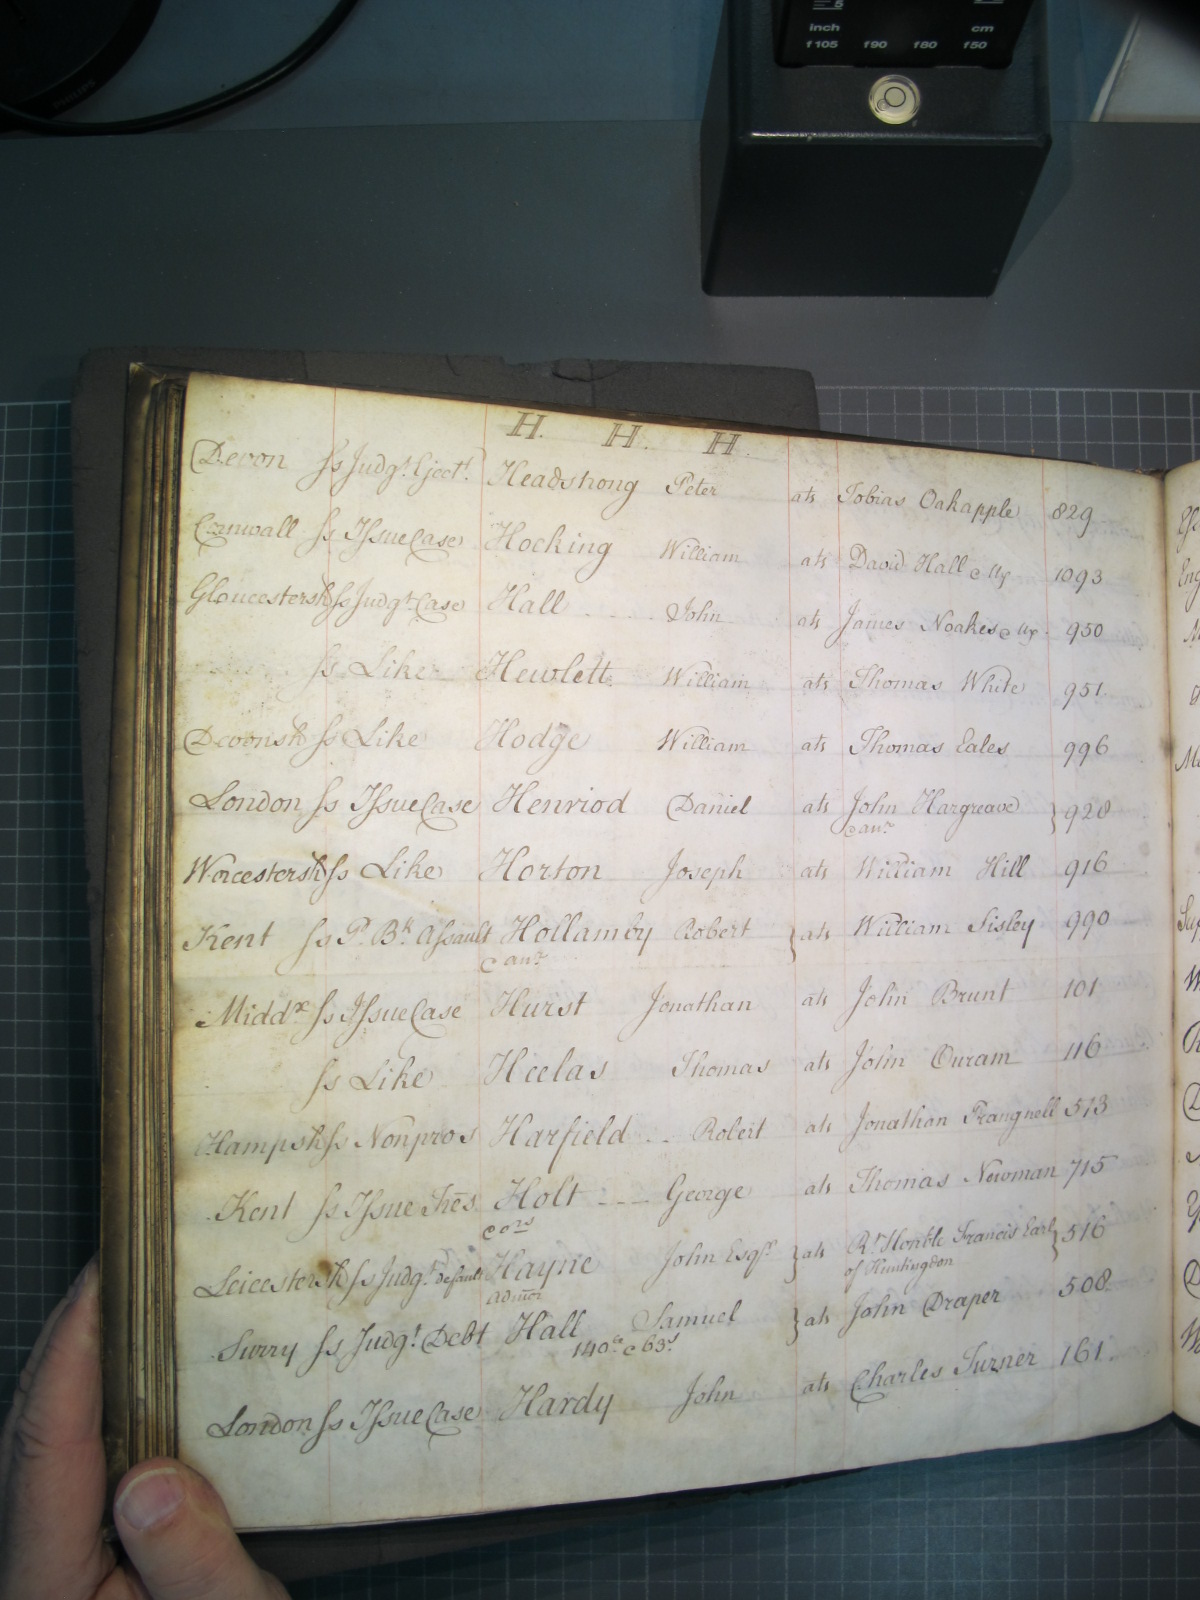 inch cm
f105 f90 f80 f50
PHILIPS
H. H. H.
Devon Ss Judgt. Ejectt. Headstrong Peter ats Tobias Oakapple 829
Cornwall Ss Issue Case Hocking William ats David Hall & Ux 1093
Gloucestersh Ss Judgt. Case Hall John ats James Noakes & Ux 950
Ss Like Hewlett William ats Thomas White 951
Devonsh Ss Like Hodge William ats Thomas Eales 996
London Ss Issue Case Henriod Daniel ats John Hargreave } 928
& anr.
Worcestersh Ss Like Horton Joseph ats William Hill 916
Kent Ss Assault Hollamby Robert } ats William Sisley 990
& anr.
Middx Ss Issue Case Hurst Jonathan ats John Brunt 101
Ss Like Heelas Thomas ats John Ouram 116
Hampsh Ss Nonpros Harfield Robert ats Jonathan Frangnell 513
Kent Ss Issue Tres Holt George ats Thomas Newman 715
& ors
Leicestersh Ss Judgt. default Hayne John Esqr. } ats Rt. Honble Francis Earl } 516
of Huntingdon
Admor
Surry Ss Judgt. Debt Hall Samuel } ats John Draper 508
140£ & 63s
London Ss Issue Case Hardy John ats Charles Turner 161